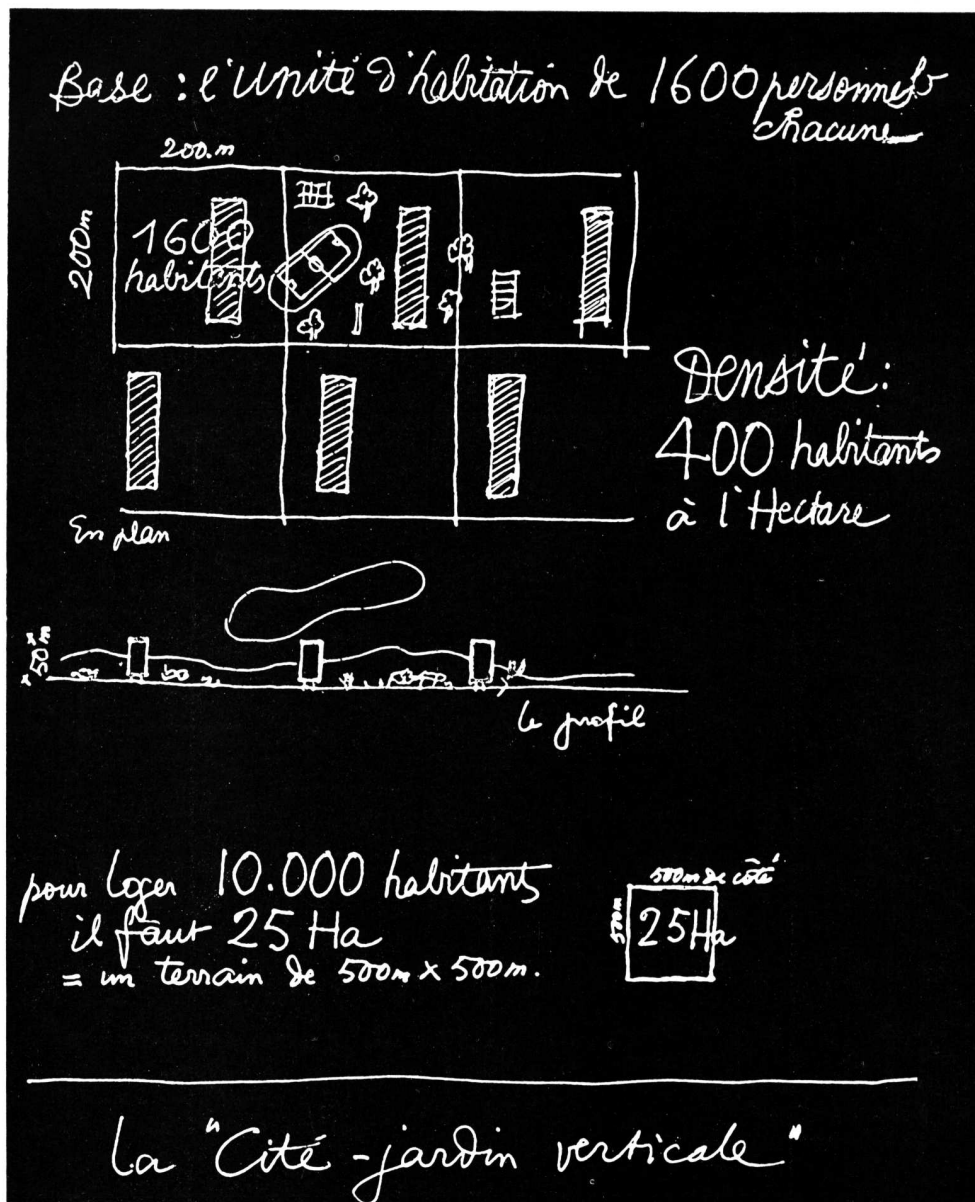 Base : l'Unité d'habitation de 1600 personnes
chacune
200.m
200m
1600
habitants
Densité:
400 habitants
à l'Hectare
En plan
50m
le profil
pour loger 10.000 habitants
il faut 25 Ha
= un terrain de 500m x 500m.
500m de côté
500m
25Ha
La "Cité-jardin verticale"